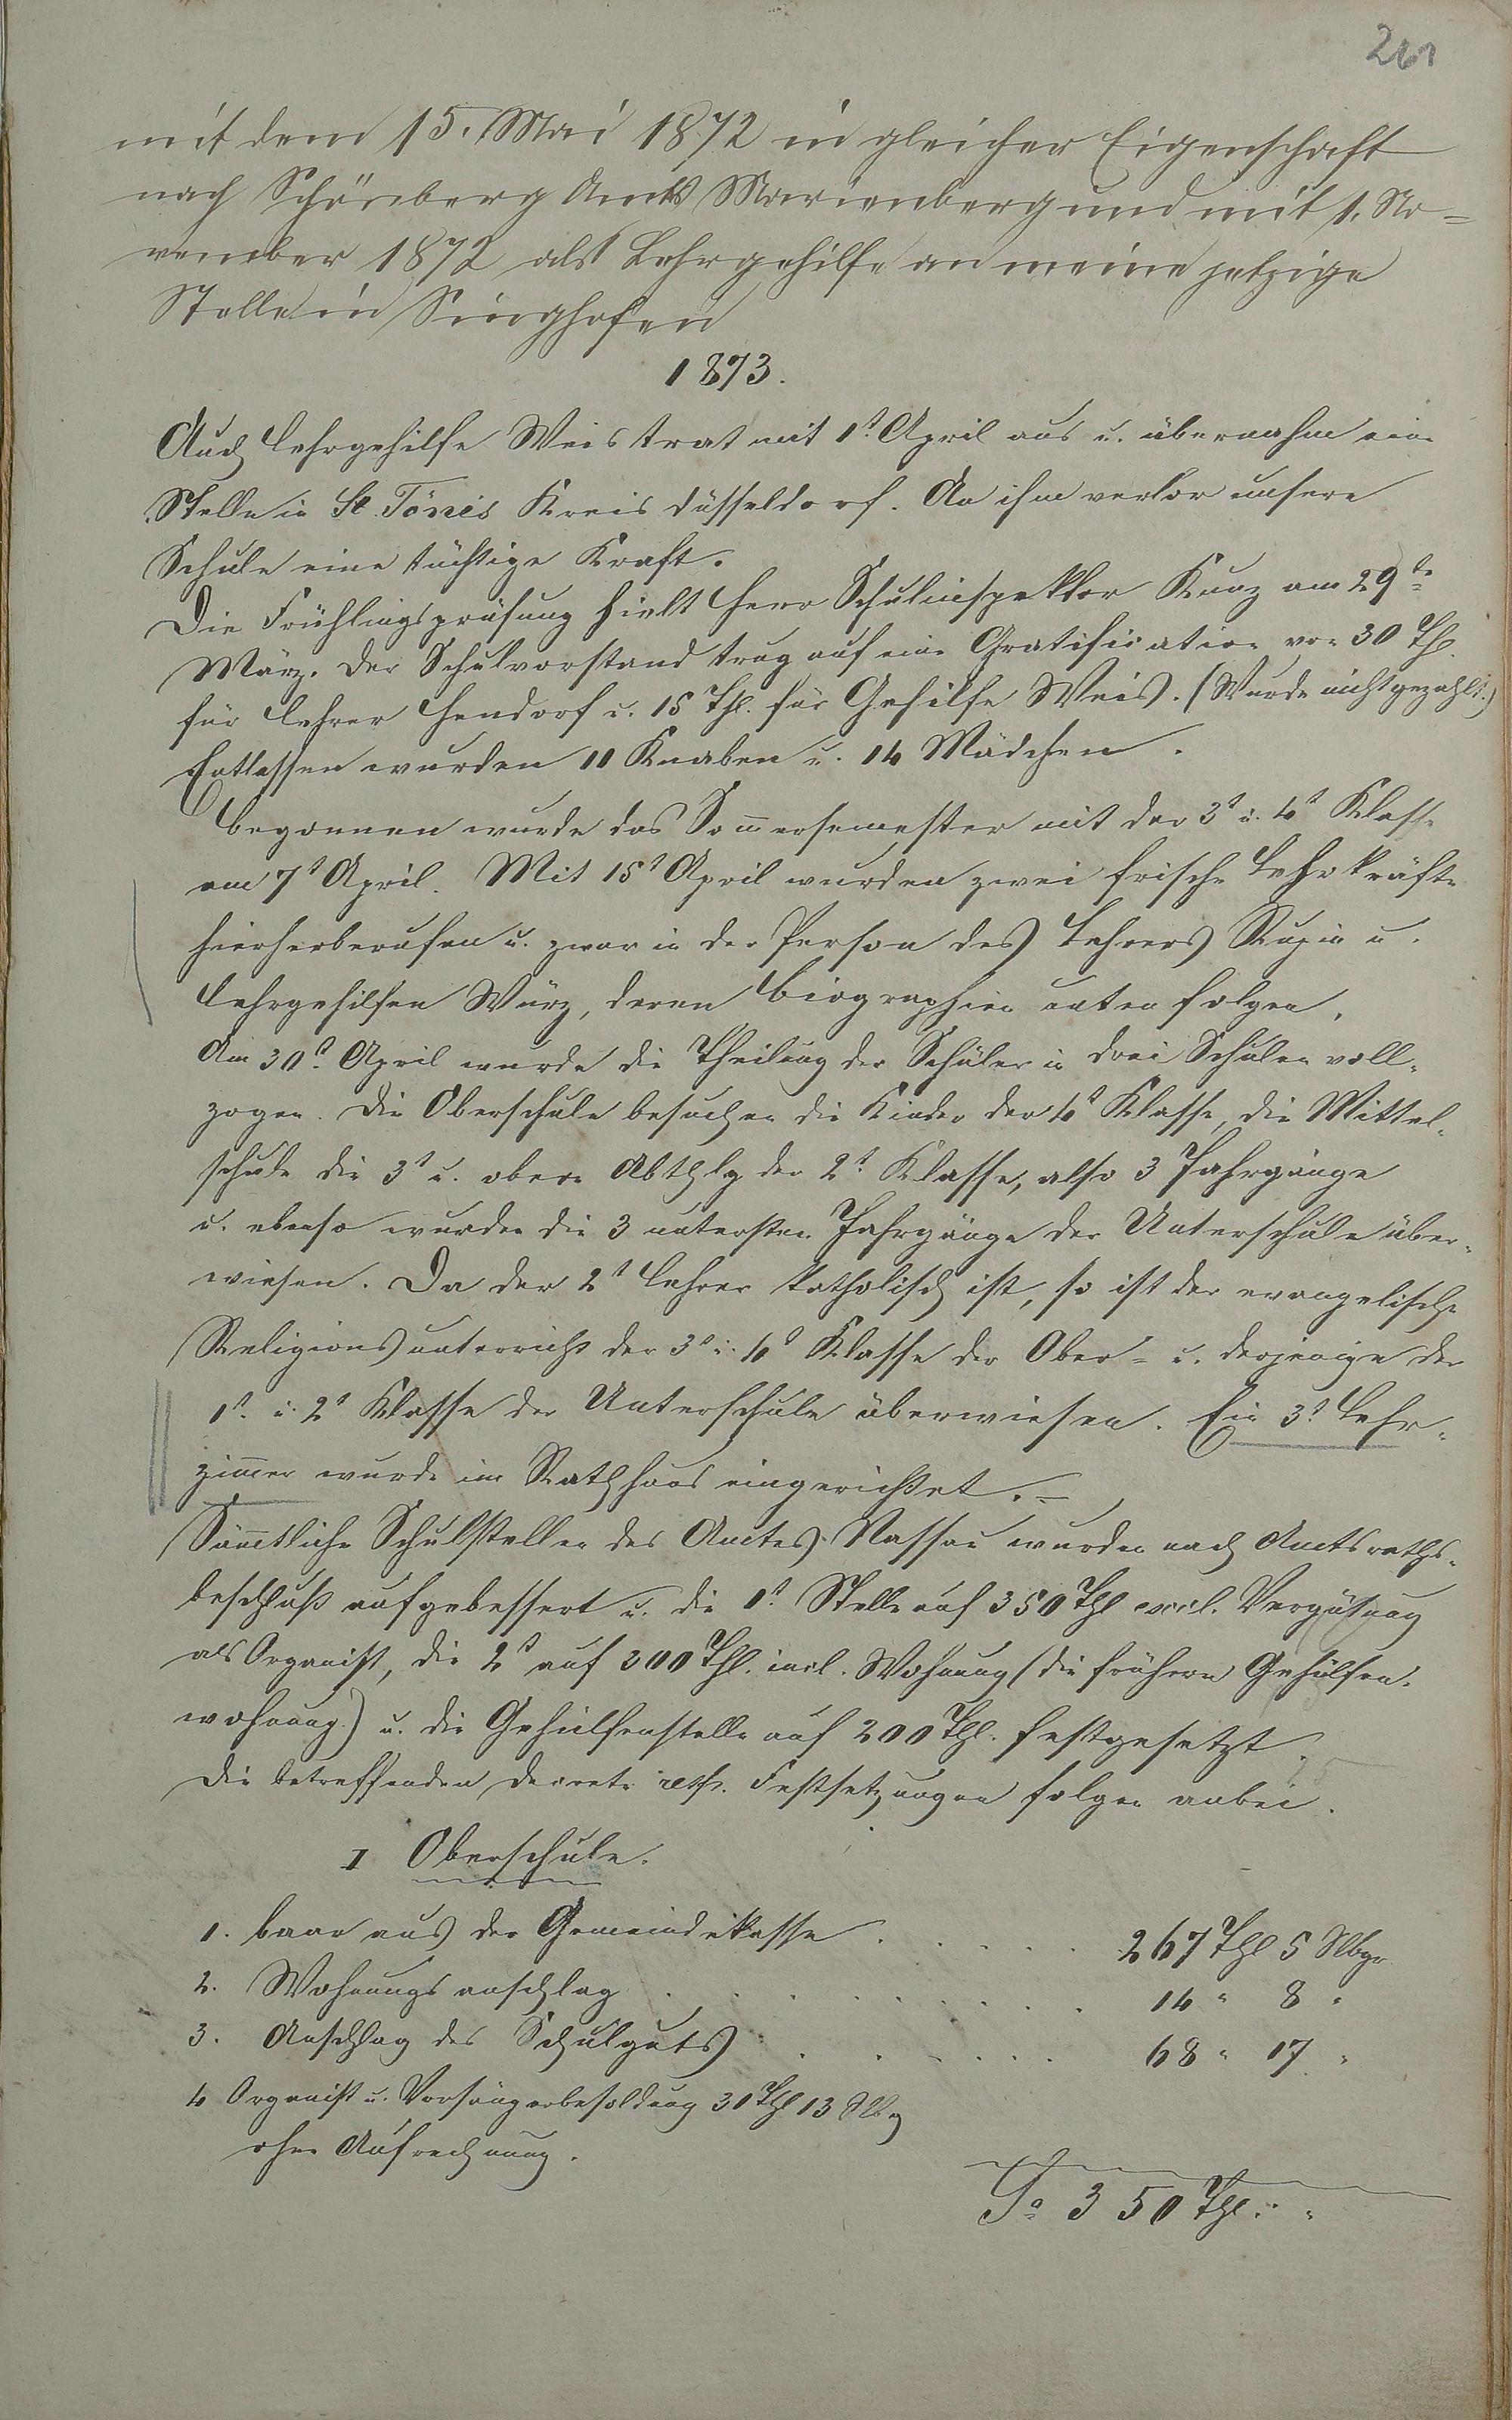 mit dem 15. Mai 1872 in gleicher Eigenschaft
nach Schönberg Amts Marienberg und mit 1. No=
vember 1872 als Lehrgehilfe an meine jetzige
Stelle in Singhofen
1873.
Auch Lehrgehilfe Weis trat mit 1t April aus u. übernahm eine
Stelle in St. Tönis Kreis Düsseldorf. An ihm verlor unsere
Schule eine tüchtige Kraft.
Die Frühlingsprüfung hielt Herr Schulinspektor Kunz am 29te
März. Der Schulvorstand trug auf eine Gratification von 30 Thl.
für Lehrer Hendorf u. 15 Thl. für Gehilfe Weis. (Wurde nicht gezahlt.)
Entlassen wurden 11 Knaben u. 14 Mädchen.
Begonnen wurde das Sommersemester mit der 3t u. 4t Klasse
am 7t April. Mit 15t April wurden zwei frische Lehrkräfte
hierherberufen u. zwar in der Person des Lehrers u.
Lehrgehilfen Würz, deren Biographien unten folgen.
Am 30t April wurde die Theilung der Schüler in drei Schulen voll-
zogen. Die Oberschule besuchen die Kinder der 4t Klasse, die Mittel-
schule die 3t u. obere Abthlg der 2t Klasse, also 3 Jahrgänge
u. ebenso wurden die 3 untersten Jahrgänge der Unterschule über-
wiesen. Da der 2t Lehrer katholisch ist, so ist der evangelische
Religionsunterricht der 3t u. 4t Klasse der Ober= u. derjenige der
1t u. 2t Klasse der Unterschule überwiesen. Ein 3t Lehr-
zimmer wurde im Rathhaus eingerichtet. –
Sämmtliche Schulstellen des Amtes Nassau wurden nach Amtsraths-
beschluß aufgebessert u. die 1t Stelle auf 350 Thl excl. Vergütung
als Organist, die 2t auf 300 Thl. incl. Wohnung (die frühere Gehülfen-
wohnung) u. die Gehülfenstelle auf 200 Thl. festgesetzt.
Die betreffenden Decrete resp. Festsetzungen folgen anbei.
I Oberschule.
1. Baar aus der Gemeindekasse . . . . . 267 Thl 5 Slbgr
2. Wohnungsanschlag . . . . . . . . 14 " 8 "
3. Anschlag des Schulguts . . . . . . 68 " 17 "
4 Organist u. Vorsängerbesoldung 31 Thl 13 Slbg
ohne Aufrechnung.
Sa 350 Thl. " "